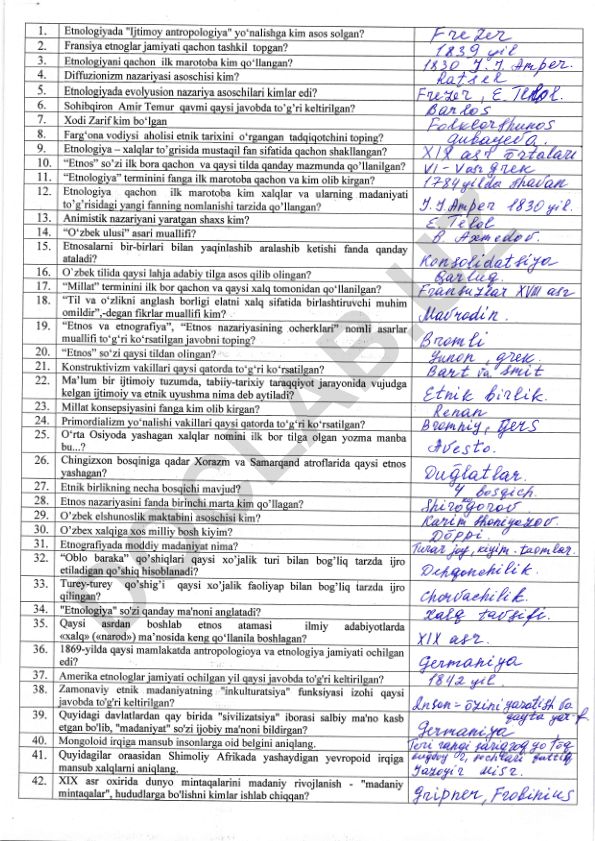 1. Etnologiyada "Ijtimoy antropologiya" yo‘nalishga kim asos solgan? Frezer
2. Fransiya etnoglar jamiyati qachon tashkil topgan? 1839 yil
3. Etnologiyani qachon ilk marotoba kim qo‘llangan? 1830 J.J. Amper.
4. Diffuzionizm nazariyasi asoschisi kim? Ratsel
5. Etnologiyada evolyusion nazariya asoschilari kimlar edi? Frezer, E. Telol.
6. Sohibqiron Amir Temur qavmi qaysi javobda to‘g‘ri keltirilgan? Barlos
7. Xodi Zarif kim bo‘lgan Folklorshunos
8. Farg‘ona vodiysi aholisi etnik tarixini o‘rgangan tadqiqotchini toping? Gubayeva.
9. Etnologiya – xalqlar to‘g‘risida mustaqil fan sifatida qachon shakllangan? XIX asr o‘rtalari
10. “Etnos” so‘zi ilk bora qachon va qaysi tilda qanday mazmunda qo‘llanilgan? VI-V asr grek
11. “Etnologiya” terminini fanga ilk marotoba qachon va kim olib kirgan? 1784 yilda Shavan
12. Etnologiya qachon ilk marotoba kim xalqlar va ularning madaniyati
to‘g‘risidagi yangi fanning nomlanishi tarzida qo‘llangan? J.J Amper 1830 yil.
13. Animistik nazariyani yaratgan shaxs kim? E. Telol
14. “O‘zbek ulusi” asari muallifi? B. Axmedov.
15. Etnosalarni bir-birlari bilan yaqinlashib aralashib ketishi fanda qanday
ataladi? Konsolidatsiya
16. O‘zbek tilida qaysi lahja adabiy tilga asos qilib olingan? Qarluq.
17. “Millat” terminini ilk bor qachon va qaysi xalq tomonidan qo‘llanilgan? Fransuzlar XVIII asr
18. “Til va o‘zlikni anglash borligi elatni xalq sifatida birlashtiruvchi muhim
omildir”,-degan fikrlar muallifi kim? Mavrodin.
19. “Etnos va etnografiya”, “Etnos nazariyasining ocherklari” nomli asarlar
muallifi to‘g‘ri ko‘rsatilgan javobni toping? Bromli
20. “Etnos” so‘zi qaysi tildan olingan? Yunon, grek.
21. Konstruktivizm vakillari qaysi qatorda to‘g‘ri ko‘rsatilgan? Bart va smit
22. Ma’lum bir ijtimoiy tuzumda, tabiiy-tarixiy taraqqiyot jarayonida vujudga
kelgan ijtimoiy va etnik uyushma nima deb aytiladi? Etnik birlik.
23. Millat konsepsiyasini fanga kim olib kirgan? Renan
24. Primordializm yo‘nalishi vakillari qaysi qatorda to‘g‘ri ko‘rsatilgan? Bromniy, Gers
25. O‘rta Osiyoda yashagan xalqlar nomini ilk bor tilga olgan yozma manba
bu...? Avesto.
26. Chingizxon bosqiniga qadar Xorazm va Samarqand atroflarida qaysi etnos
yashagan? Dug‘latlar.
27. Etnik birlikning necha bosqichi mavjud? 4 bosqich.
28. Etnos nazariyasini fanda birinchi marta kim qo‘llagan? Shirogorov
29. O‘zbek elshunoslik maktabini asoschisi kim? Karim Shoniyozov.
30. O‘zbex xalqiga xos milliy bosh kiyim? Do‘ppi.
31. Etnografiyada moddiy madaniyat nima? Turar joy, kiyim. taomlar.
32. “Oblo baraka” qo‘shiqlari qaysi xo‘jalik turi bilan bog‘liq tarzda ijro
etiladigan qo‘shiq hisoblanadi? Dehqonchilik.
33. Turey-turey qo‘shig‘i qaysi xo‘jalik faoliyap bilan bog‘liq tarzda ijro
qilingan? Chorvachilik.
34. "Etnologiya" so'zi qanday ma'noni anglatadi? Xalq tavsifi.
35. Qaysi asrdan boshlab etnos atamasi ilmiy adabiyotlarda
«xalq» («narod») ma’nosida keng qo‘llanila boshlagan? XIX asr.
36. 1869-yilda qaysi mamlakatda antropologioya va etnologiya jamiyati ochilgan
edi? Germaniya
37. Amerika etnologlar jamiyati ochilgan yil qaysi javobda to'g'ri keltirilgan? 1842 yil.
38. Zamonaviy etnik madaniyatning "inkulturatsiya" funksiyasi izohi qaysi
javobda to'g'ri keltirilgan? Inson-o‘zini yaratish va
qayta
39. Quyidagi davlatlardan qay birida "sivilizatsiya" iborasi salbiy ma'no kasb
etgan bo'lib, "madaniyat" so'zi ijobiy ma'noni bildirgan? Germaniya
40. Mongoloid irqiga mansub insonlarga oid belgini aniqlang. Teri rangi
41. Quyidagilar oraasidan Shimoliy Afrikada yashaydigan yevropoid irqiga
mansub xalqlarni aniqlang. Jazoyir Misr.
42. XIX asr oxirida dunyo mintaqalarini madaniy rivojlanish - "madaniy
mintaqalar", hududlarga bo'lishni kimlar ishlab chiqqan? Gripner, Frobinius